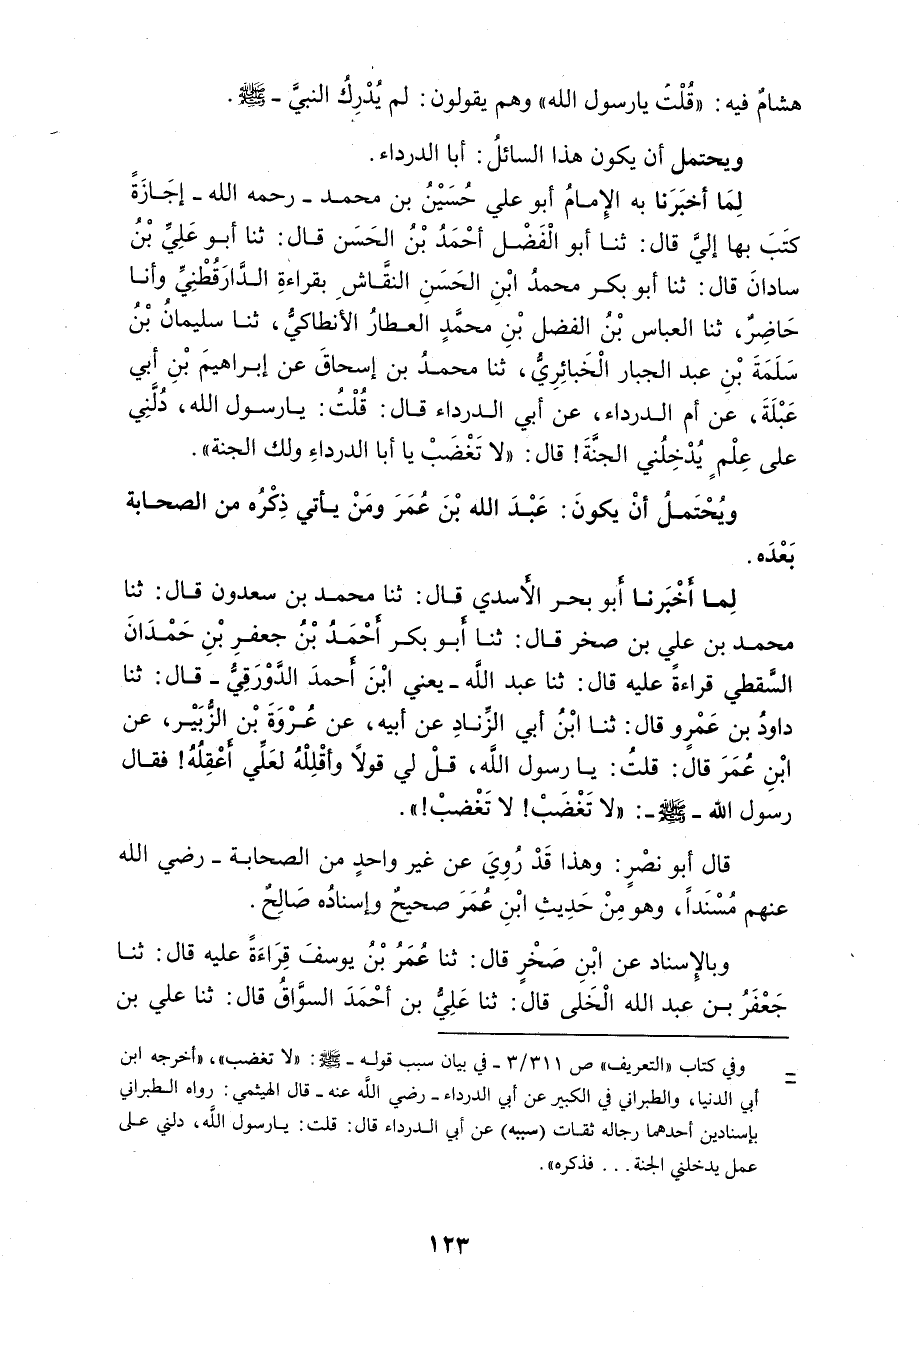 هشامٌ فيه: «قُلْتُ يارسول الله» وهم يقولون: لم يُدْرِكُ النبيَّ - ﷺ.
ويحتمل أن يكون هذا السائلُ: أبا الدرداء.
لِمَا أخبَرَنا به الإمـامُ أبو علي حُسَيْنُ بن محمـد - رحمه الله - إجَـازَةً
كتَبَ بها إليَّ قال: ثنـا أبو الْفَضْـل أحْمَدُ بْنُ الحَسَن قـال: ثنا أبـو عَلِيِّ بْنُ
سادانَ قال: ثنا أبو بكـر محمدُ ابْنِ الحَسَنِ النقَّاشِ بقراءةِ الـدَّارَقُطْنِيِّ وأنـا
حَاضِرٌ، ثنا العباس بْنُ الفضل بْنِ محمَّدٍ العـطارُ الأنطاكيُّ، ثنـا سليمانُ بْنُ
سَلَمَةَ بْنِ عبد الجبار الْخَبائِرِيُّ، ثنا محمـدُ بن إسحاقَ عن إبـراهيمَ بْنِ أبي
عَبْلَةَ، عن أم الـدرداء، عن أبي الـدرداء قـال: قُلْتُ: يـارسـول الله، دُلَّنِي
على عِلْمٍ يُدْخِلُني الجنَّةَ! قال: «لا تَغْضَبْ يا أبا الدرداءِ ولك الجنة».
ويُحْتَمـلُ أنْ يكونَ: عَبْـدَ الله بْنَ عُمَرَ ومَنْ يـأتي ذِكْرُه من الصحـابة
بَعْدَه.
لِمـا أَخْبَرنـا أَبو بحـر الأَسدي قـال: ثنا محمـد بن سعدون قـال: ثنا
محمـد بن علي بن صخر قـال: ثنـا أَبـو بكـر أَحْمَـدُ بْنُ جعفـرِ بْنِ حَمْدَانَ
السَّقطي قراءةً عليه قال: ثنا عبد اللَّه - يعني ابْنَ أَحمدَ الدَّوْرَقِيُّ - قـال: ثنا
داودُ بن عَمْرٍو قال: ثنـا ابْنُ أبي الزِّنـادِ عن أبيه، عن عُـرْوَةَ بْنِ الزُّبَيْـر، عن
ابْنِ عُمَرَ قال: قلتُ: يـا رسول اللَّه، قـلْ لي قولاً وأقْلِلْهُ لعَلِّي أعْقِلُهُ! فقـال
رسول الله - ﷺ -: «لا تَغْضَبْ! لا تَغْضبْ!».
قال أبو نصْرٍ: وهذا قَدْ رُوِيَ عن غير واحدٍ من الصحابـة - رضي الله
عنهم مُسْنَداً، وهو مِنْ حَدِيثِ ابْنِ عُمَرَ صحيحٌ وإسنادُه صَالِحٌ.
وبالإسناد عن ابْنِ صَخْرٍ قال: ثنا عُمَرُ بْنُ يوسفَ قِرَاءَةً عليه قال: ثنـا
جَعْفَرُ بـن عبد الله الْخَلى قال: ثنا عَلِيُّ بن أحْمَدَ السوَّاقُ قال: ثنا علي بن
= وفي كتاب «التعريف» ص ٣/٣١١ - في بيان سبب قولـه - ﷺ: «لا تغضب»، «أخرجه ابن
أبي الدنيا، والطبراني في الكبير عن أبي الدرداء - رضي اللَّه عنه - قال الهيثمي: رواه الـطبراني
بإسنادين أحدهما رجاله ثقـات (سببه) عن أبي الـدرداء قال: قلت: يـارسول اللَّه، دلني عـلى
عمل يدخلني الجنة... فذكره».
١٢٣